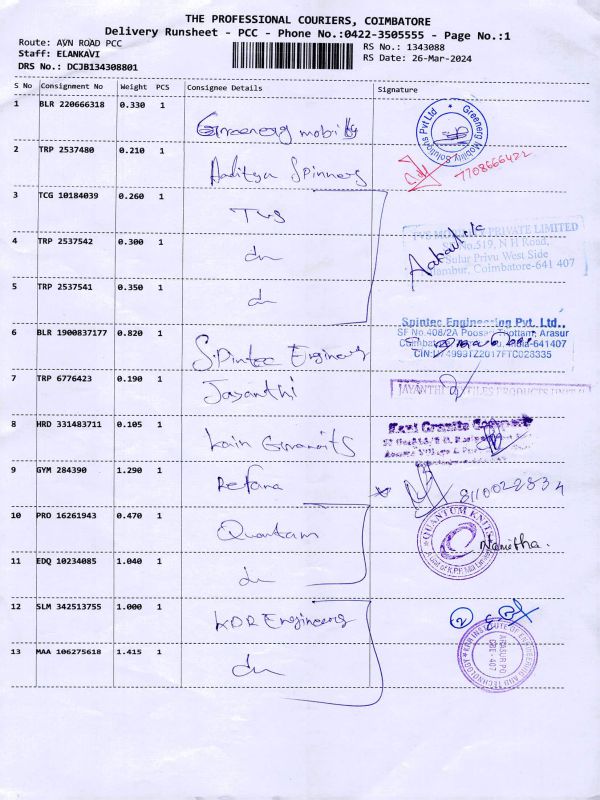 THE PROFESSIONAL COURIERS, COIMBATORE
Delivery Runsheet - PCC - Phone No.:0422-3505555 - Page No.:1
Route: AVN ROAD PCC
Staff: ELANKAVI
DRS No.: DCJB134308801
RS No.: 1343088
RS Date: 26-Mar-2024
S No Consignment No Weight PCS Consignee Details Signature
1 BLR 220666318 0.330 1 Greenerg mobility
Greenerg Mobility Solutions Pvt Ltd
2 TRP 2537480 0.210 1 Aaditya Spinners 7708666422
3 TCG 10184039 0.260 1 TVS
MOBILITY PRIVATE LIMITED
SF No.519, N H Road,
Sulur Privu West Side
Coimbatore-641 407
4 TRP 2537542 0.300 1 do
5 TRP 2537541 0.350 1 do
6 BLR 1900837177 0.820 1 S.Pintec Engineers
Spintec Engineering Pvt. Ltd.,
SF No.408/2A Poosari Thottam, Arasur
7 TRP 6776423 0.190 1 Jayanthi
JAYANTHI TEXTILES PRODUCTS
8 HRD 331483711 0.105 1 Kain Granits
9 GYM 284390 1.290 1 Refana
10 PRO 16261943 0.470 1 Quantam
QUANTUM KNITS
Namitha.
11 EDQ 10234085 1.040 1 do
12 SLM 342513755 1.000 1 KDR Engineers
13 MAA 106275618 1.415 1 do
KPR INSTITUTE OF ENGINEERING AND TECHNOLOGY
ARASUR PO
CBE - 407